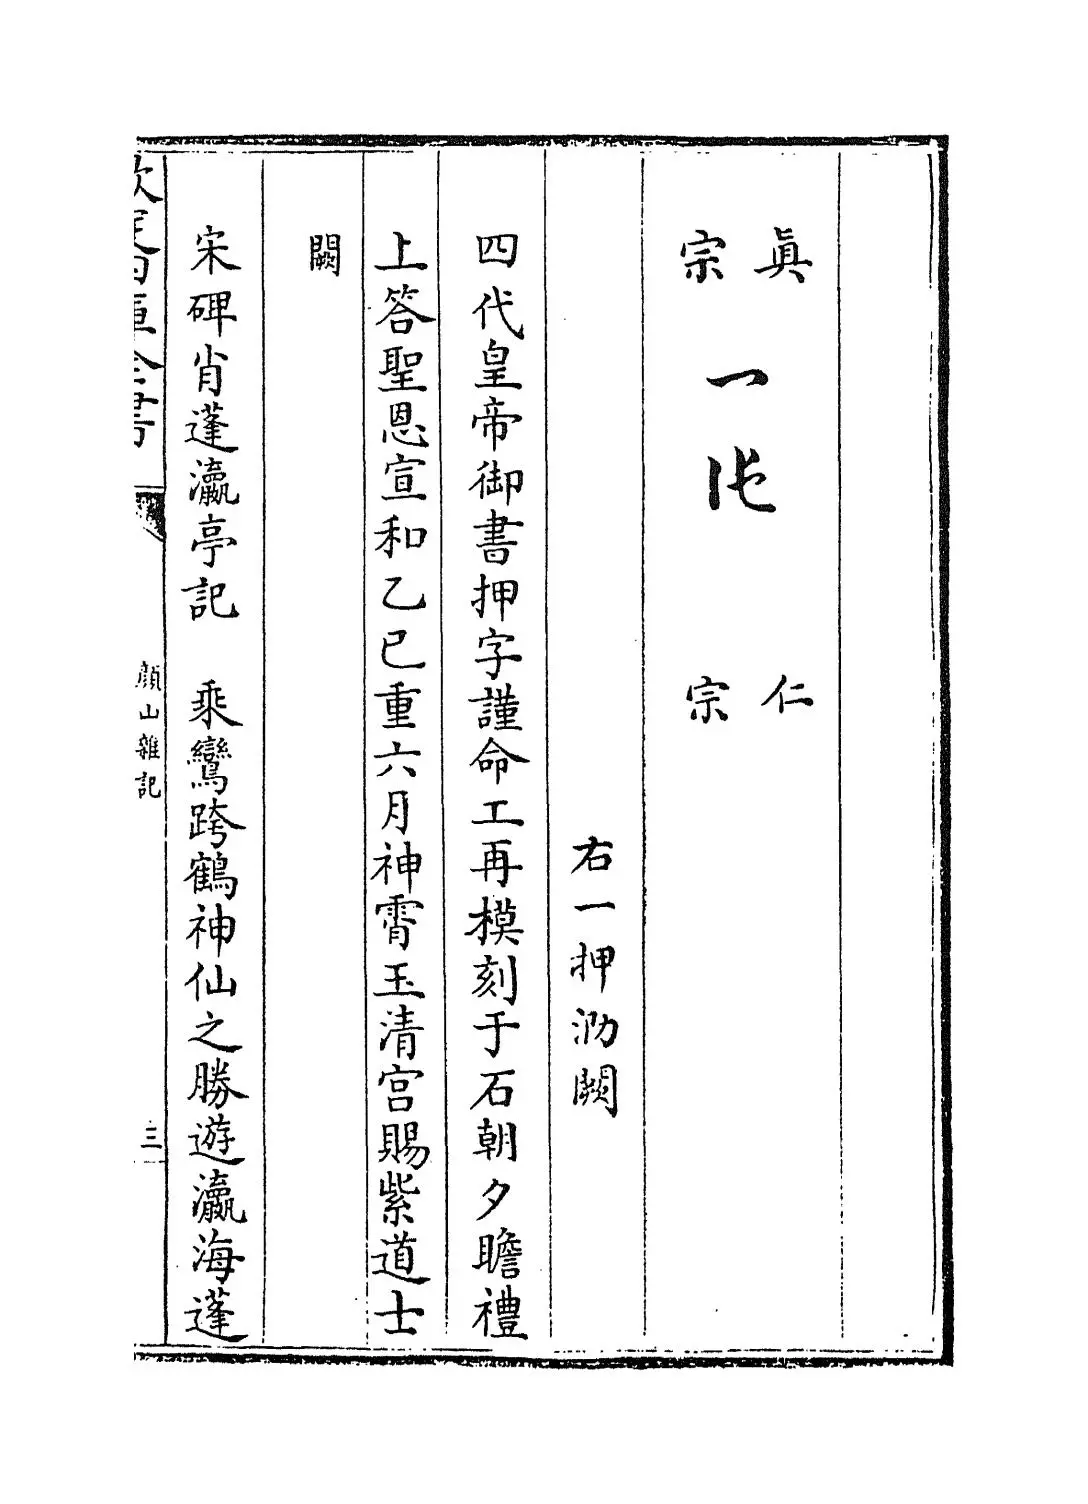 眞宗
仁宗
右一押泐闕
四代皇帝御書押字謹命工再模刻于石朝夕瞻禮
上答聖恩宣和乙巳重六月神霄玉清宫賜紫道士
闕
宋碑肖蓬瀛亭記　乘鸞跨鶴神仙之勝遊瀛海蓬
欽定四庫全書
顔山雜記
三